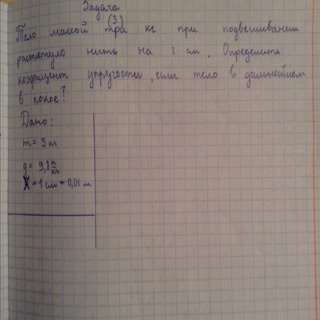 Задача
(3)
Тело массой три кг при подвешивании
растянуло нить на 1 см. Определите
коэфициент упругости, если тело в дальнейшем
в покое?
Дано:
m = 3 м
g = 9,8
X = 1 см = 0,01 м